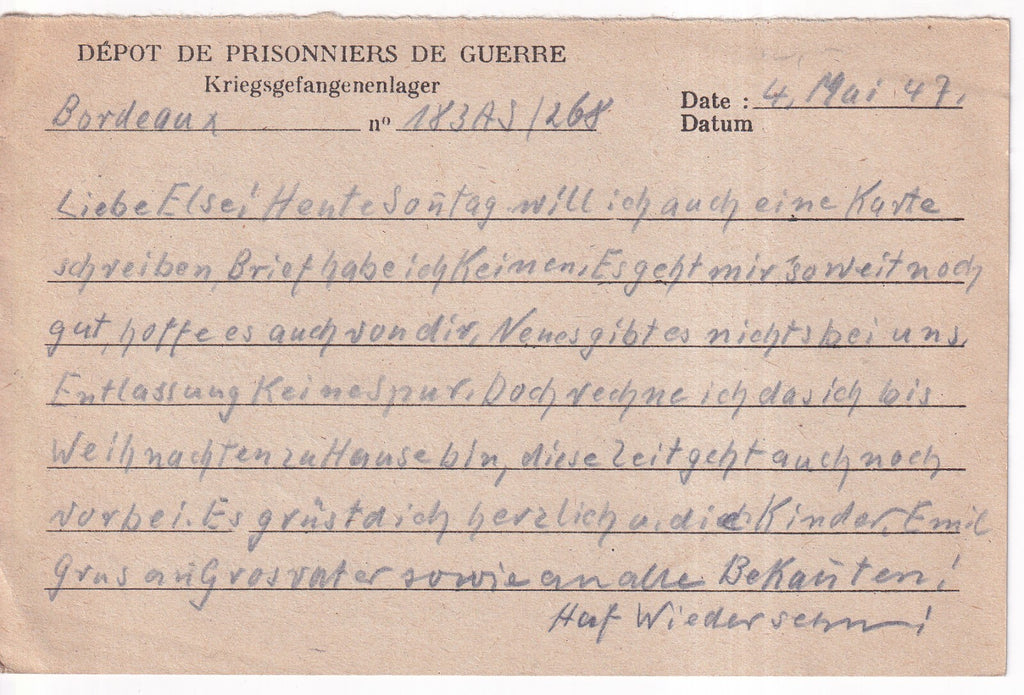 DÉPOT DE PRISONNIERS DE GUERRE
Kriegsgefangenenlager
Bordeaux nº 183AS/268
Date : 4. Mai 47.
Datum
Liebe Else! Heute Soñtag will ich auch eine Karte
schreiben, Brief habe ich Keinen. Es geht mir soweit noch
gut, hoffe es auch von dir, Neues gibt es nichts bei uns.
Entlassung Keine Spur. Doch rechne ich das ich bis
Weihnachten zu Hause bin, diese Zeit geht auch noch
vorbei. Es grüst dich herzlich u. die Kinder, Emil
Grus an Grosvater sowie an alle Bekañten!
Auf Wiedersehn!